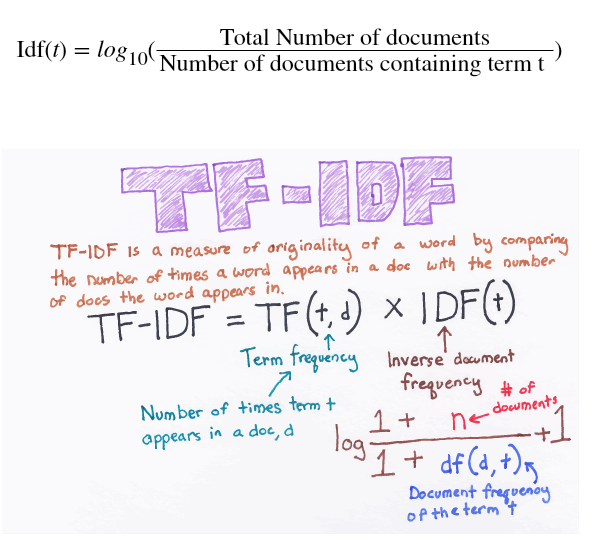 Idf(t) = log10(Total Number of documents / Number of documents containing term t)
TF-IDF
TF-IDF is a measure of originality of a word by comparing
the number of times a word appears in a doc with the number
of docs the word appears in.
TF-IDF = TF(t, d) × IDF(t)
Term frequency
Inverse document
frequency
Number of times term t
appears in a doc, d
# of
documents
log 1 + n / 1 + df(d, t) + 1
Document frequency
of the term t